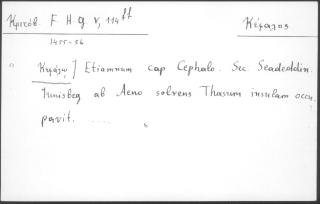 Κριτόβ. F H G V, 114 ff Κέφαλος
1455-56
Κεφάλῳ] Etiamnum cap Cephalo. Sec. Seadeddin.
Iunisbeg ab Aeno solvens Thasum insulam occu.
pavit. .....